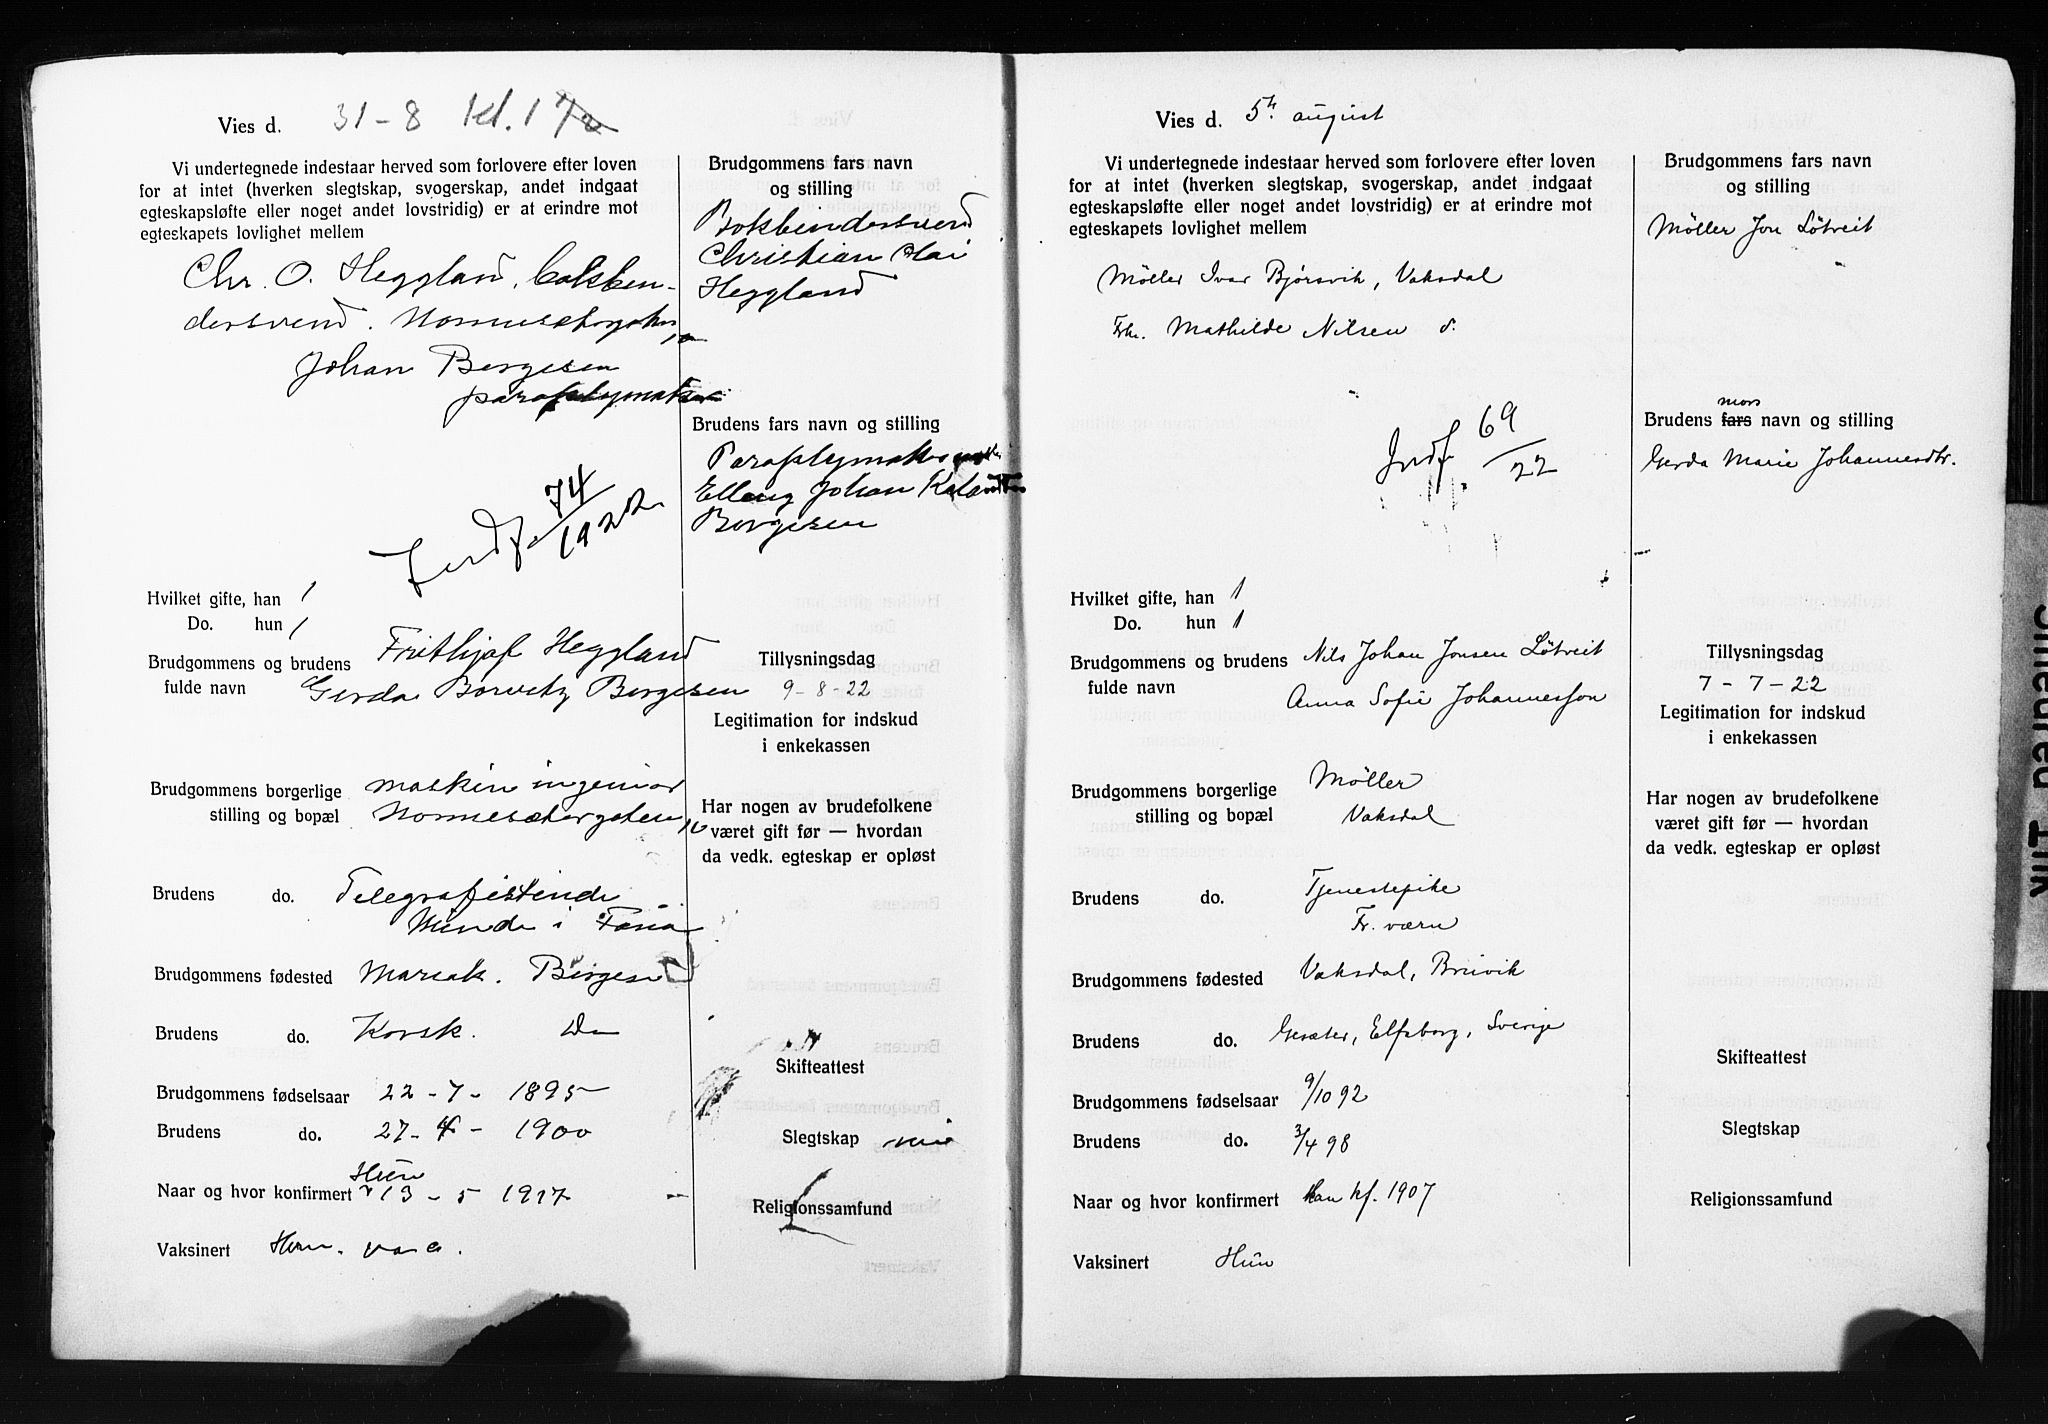 Vies d. 31-8 kl. 1
Vi undertegnede indestaar herved som forlovere efter loven
for at intet (hverken slegtskap, svogerskap, andet indgaat
egteskapsløfte eller noget andet lovstridig) er at erindre mot
egteskapets lovlighet mellem
Chr. O. Heggland, bokben-
dersvend.
Johan Børgesen
paraplymaker
Indf. 74/1922
Hvilket gifte, han 1
Do. hun 1
Brudgommens og brudens Frithjof Heggland
fulde navn Gerda Børgesen
Brudgommens borgerlige maskiningeniør
stilling og bopæl
Brudens do. Telegrafistinde
Minde i Fana
Brudgommens fødested Mariak. Bergen
Brudens do. Korsk. Do
Brudgommens fødselsaar 22-7-1895
Brudens do. 27-4-1900
Hun
Naar og hvor konfirmert 13-5 1917
Vaksinert Hun.
Brudgommens fars navn
og stilling
Bokbindersvend
Christian
Heggland
Brudens fars navn og stilling
Paraplymaker
Elling Johan
Børgesen
Tillysningsdag
9-8-22
Legitimation for indskud
i enkekassen
Har nogen av brudefolkene
været gift før — hvordan
da vedk. egteskap er opløst
Skifteattest
Slegtskap nei
Religionssamfund
Vies d. 5te august
Vi undertegnede indestaar herved som forlovere efter loven
for at intet (hverken slegtskap, svogerskap, andet indgaat
egteskapsløfte eller noget andet lovstridig) er at erindre mot
egteskapets lovlighet mellem
Møller Ivar Bjørsvik, Vaksdal
Frk. Mathilde Nilsen
Indf. 69/22
Hvilket gifte, han 1
Do. hun 1
Brudgommens og brudens Nils Johan Jonsen Løtveit
fulde navn Anna Sofie Johannesson
Brudgommens borgerlige Møller
stilling og bopæl Vaksdal
Brudens do. Tjenestepike
Brudgommens fødested Vaksdal, Bruvik
Brudens do. Elfsborg, Sverige
Brudgommens fødselsaar 9/10 92
Brudens do. 3/4 98
Naar og hvor konfirmert Han kf. 1907
Vaksinert Hun
Brudgommens fars navn
og stilling
Møller Jon Løtveit
mors
Brudens fars navn og stilling
Gerda Marie Johannesdtr.
Tillysningsdag
7-7-22
Legitimation for indskud
i enkekassen
Har nogen av brudefolkene
været gift før — hvordan
da vedk. egteskap er opløst
Skifteattest
Slegtskap
Religionssamfund